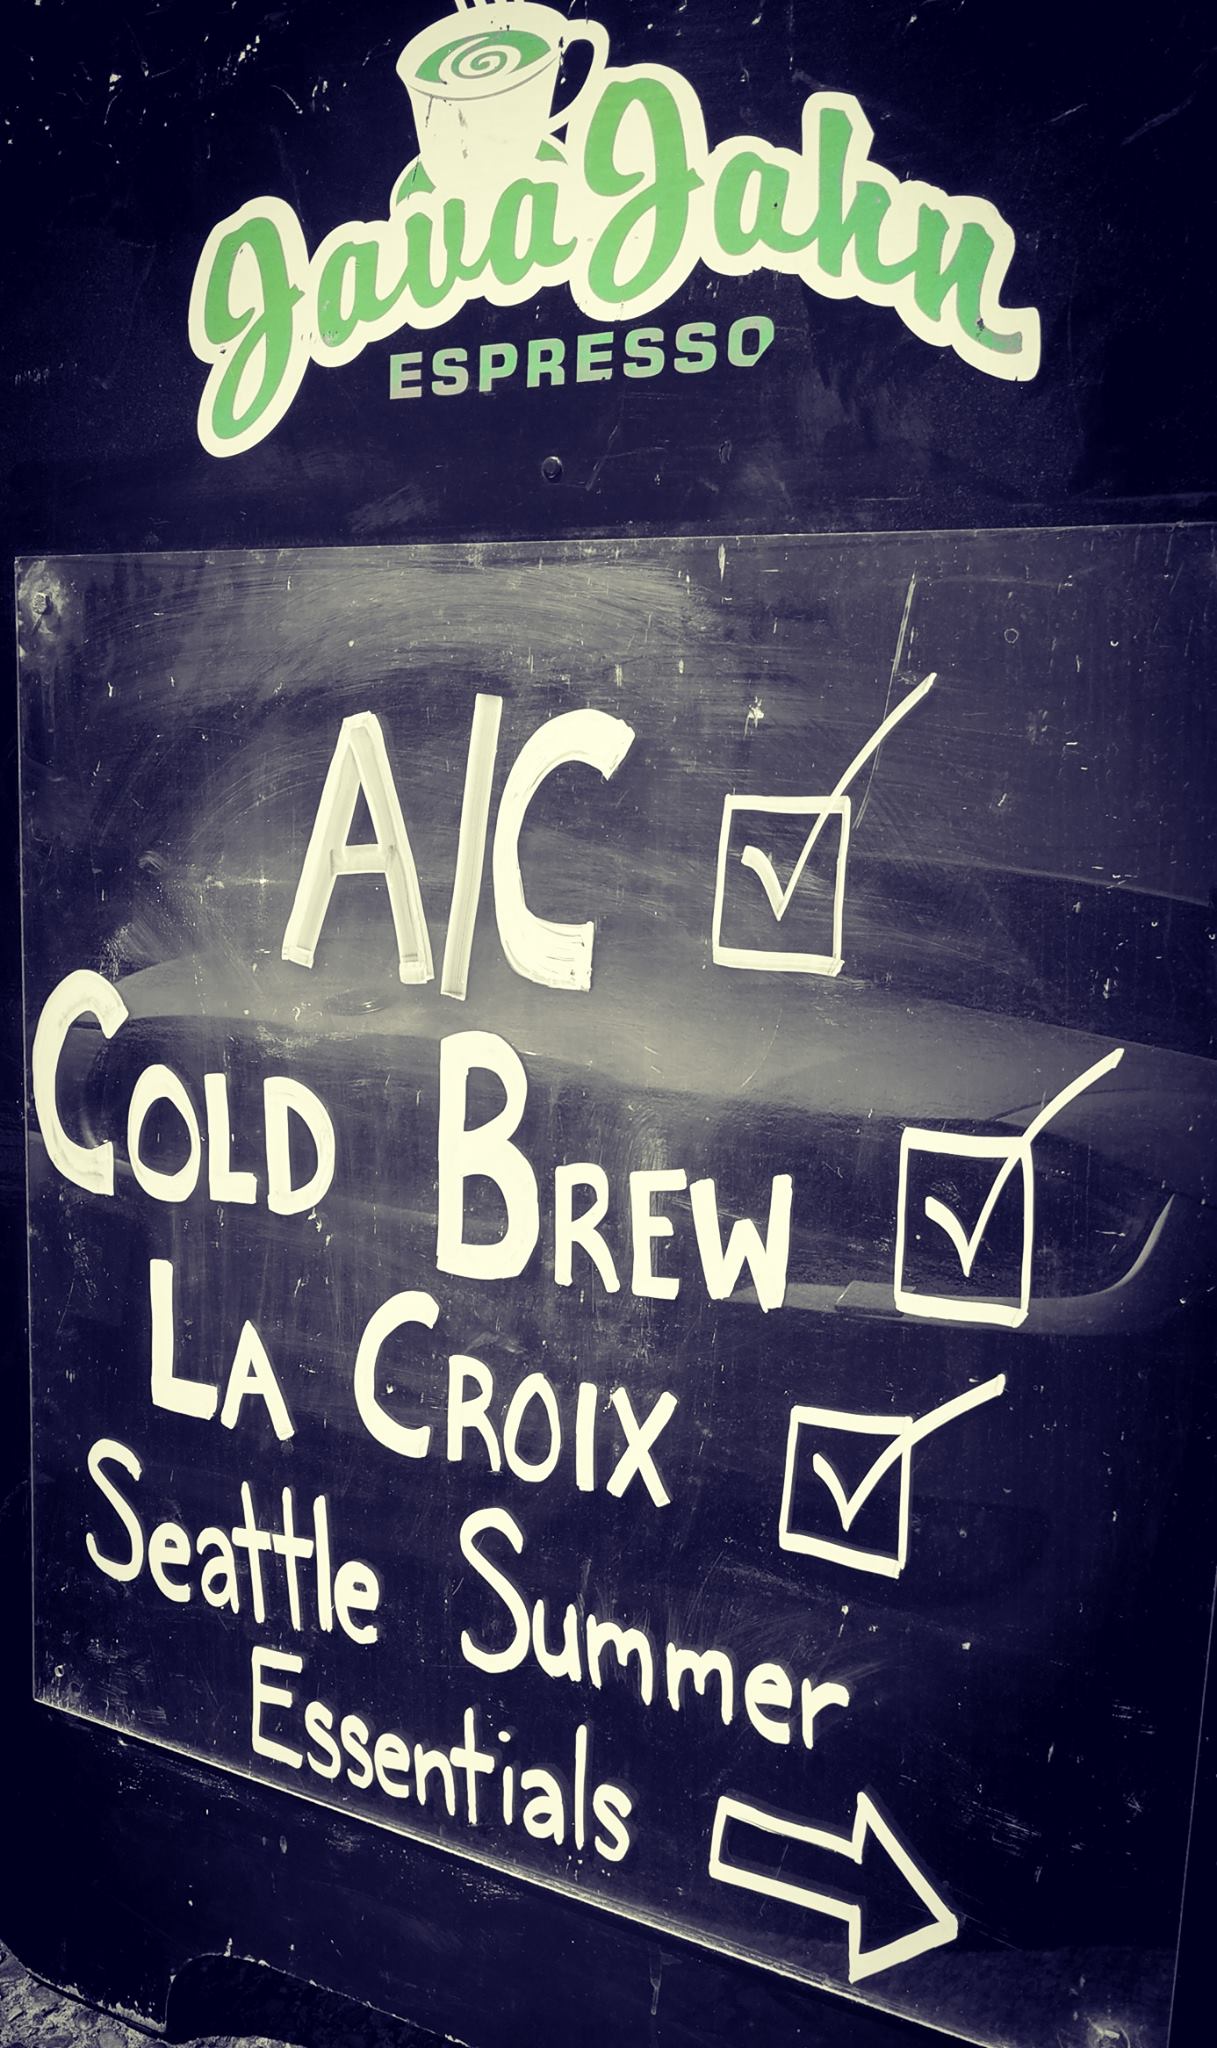 Java Jahn
ESPRESSO
A/C
COLD BREW
LA CROIX
Seattle Summer
Essentials